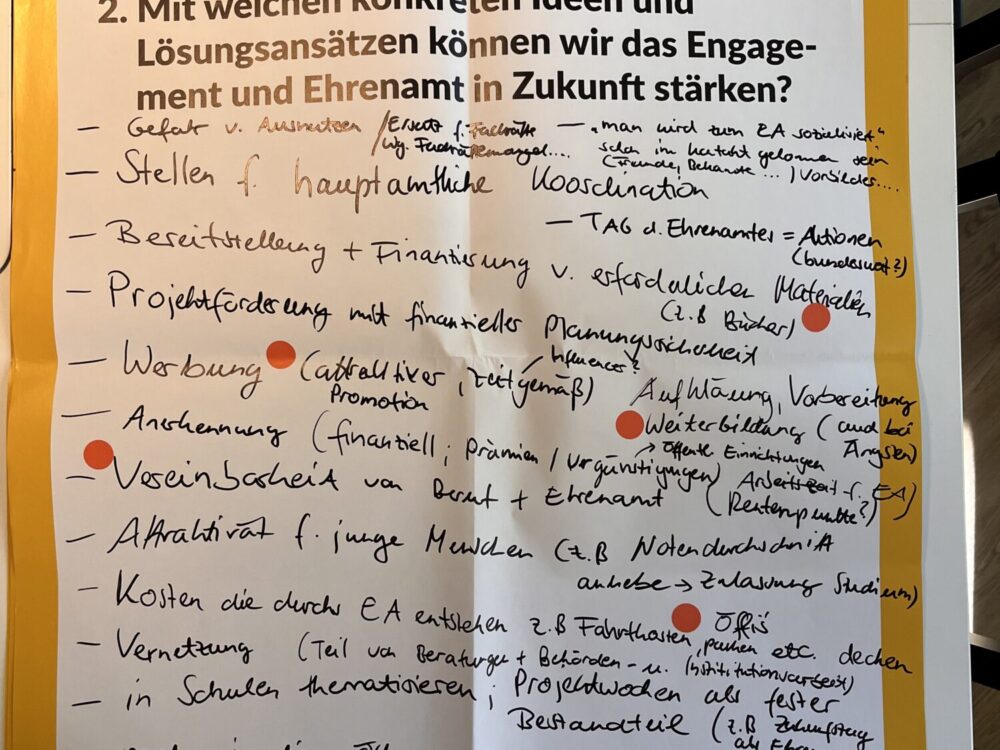 2. Mit welchen konkreten Ideen und
Lösungsansätzen können wir das Engage-
ment und Ehrenamt in Zukunft stärken?
– Gefahr v. Ausnutzen / Ersatz f. Fachkräfte
wg. Fachkräftemangel....
– „man wird zum EA sozialisiert"
schon im gekommen sein
(Freunde, Bekannte ...) Vorbilder....
– Stellen f. hauptamtliche Koordination
– TAG d. Ehrenamtes = Aktionen
(bundesweit?)
– Bereitstellung + Finanzierung v. erforderlichen Materialien
(z.B Bücher)
– Projektförderung mit finanzieller Planungssicherheit
– Werbung (attraktiver, zeitgemäß)
Influencer?
Promotion
Aufklärung, Vorbereitung
Weiterbildung (auch bei
Ängsten)
– Anerkennung (finanziell; Prämien / Vergünstigungen)
→ öffentl. Einrichtungen
– Vereinbarkeit von Beruf + Ehrenamt (Arbeitszeit f. EA)
(Rentenpunkte?)
– Attraktivität f. junge Menschen (z.B Notendurchschnitt
anhebe → Zulassung Studium)
– Kosten die durchs EA entstehen z.B Fahrtkosten, Öffis
parken etc. decken
– Vernetzung (Teil von Beratungen + Behörden- u. Institutionenarbeit)
– in Schulen thematisieren; Projektwochen als fester
Bestandteil (z.B Zukunftstag
als